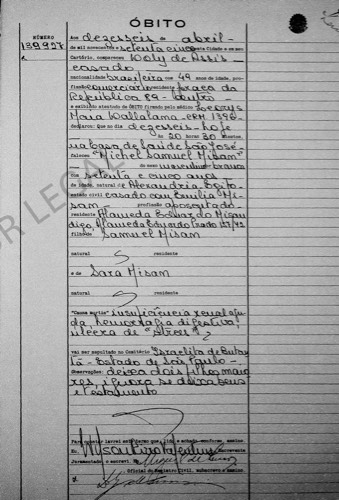 ÓBITO
NÚMERO
139927
Aos dezesseis de abril
de mil novecentos e setenta e cinco nesta Cidade e em seu
Cartório, compareceu Woly de Assis
casado
nacionalidade brasileira com 49 anos de idade, pro-
fissão comerciário residente praça da
República 89 - centro
e exibindo atestado de ÓBITO firmado pelo médico
Maia CRM 1396
declarou: Que no dia dezesseis - hoje
às 20 horas 30 minutos
na Casa de Saúde São José
faleceu "Michel Samuel Misan"
do sexo masculino branco
com setenta e cinco anos
de idade, natural de Alexandria Egito
estado civil casado com Emilia Mi-
san profissão aposentado
residente Alameda Eduardo
Alameda Eduardo Prado
filho de Samuel Misam
natural
e de Sara Misam
natural
"Causa mortis" insuficiência renal agu-
da, hemorragia digestiva,
ulcera de "stress".
vai ser sepultado no Cemitério Israelita de Butan-
tã - Estado de São Paulo
Observações: deixa dois filhos maio-
res, ignora se deixa bens
e testamento
Para constar lavrei este termo que, lido e achado conforme, assina.
Eu, escrevente
Juramentado, o escrevi. E eu,
Oficial do Registro Civil, subscrevo e assino.